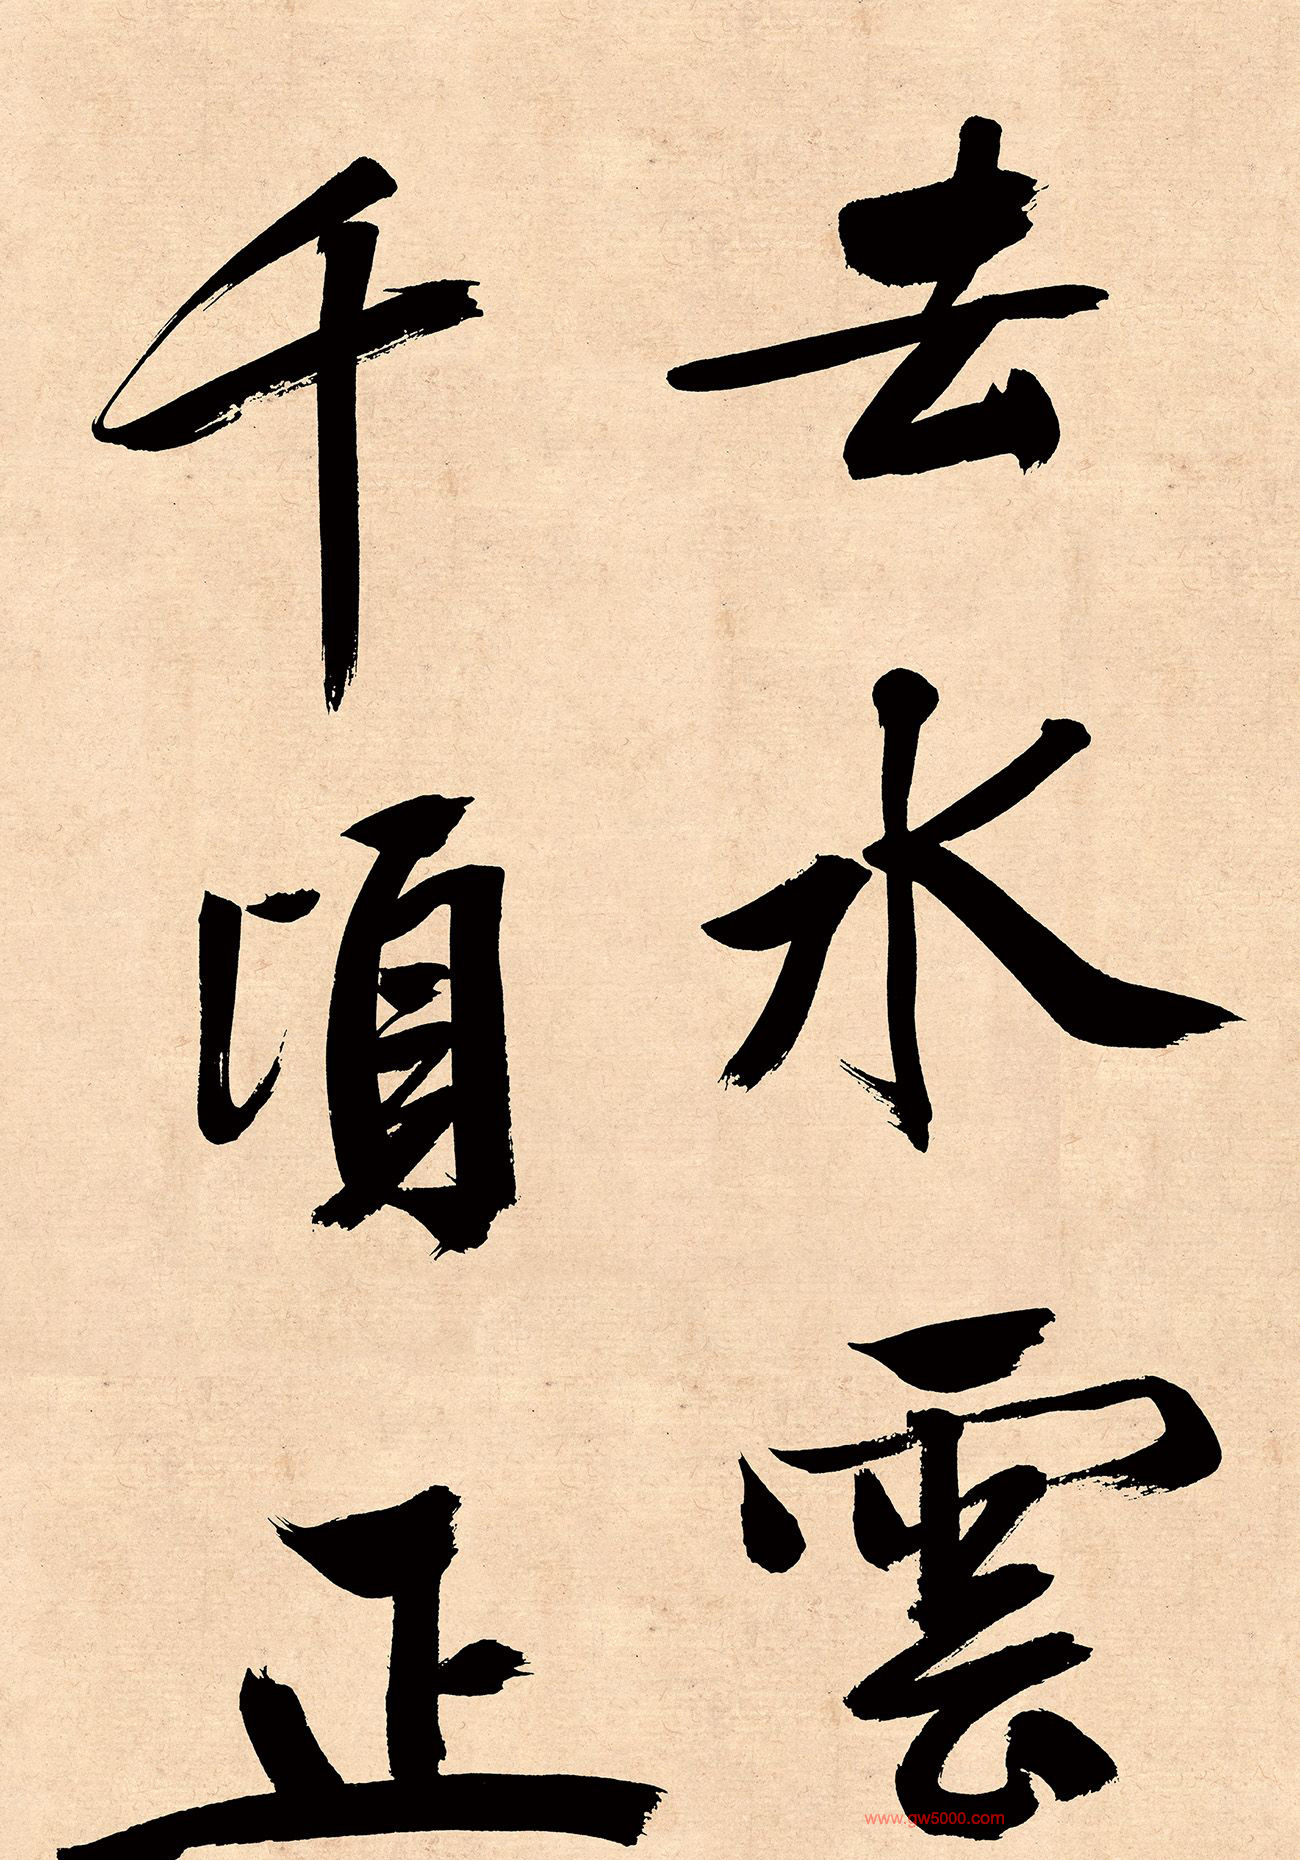 去水雲
千頃正
www.gw5000.com